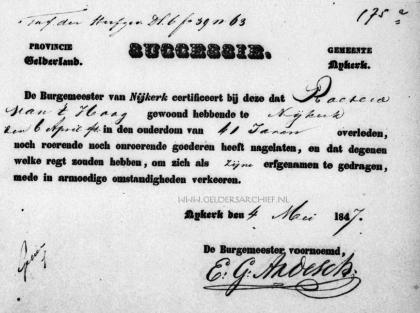 Taf der Hs fo 39 n 63
175 a
PROVINCIE
Gelderland.
SUCCESSIE.
GEMEENTE
Nykerk.
De Burgemeester van Nijkerk certificeert bij deze dat
van t Hoog gewoond hebbende te Nijkerk
den 6 April in den ouderdom van 40 Jaren overleden,
noch roerende noch onroerende goederen heeft nagelaten, en dat degenen
welke regt zouden hebben, om zich als zijne erfgenamen te gedragen,
mede in armoedige omstandigheden verkeeren.
WWW.GELDERSARCHIEF.NL
Nykerk den 4 Mei 1847.
De Burgemeester voornoemd,